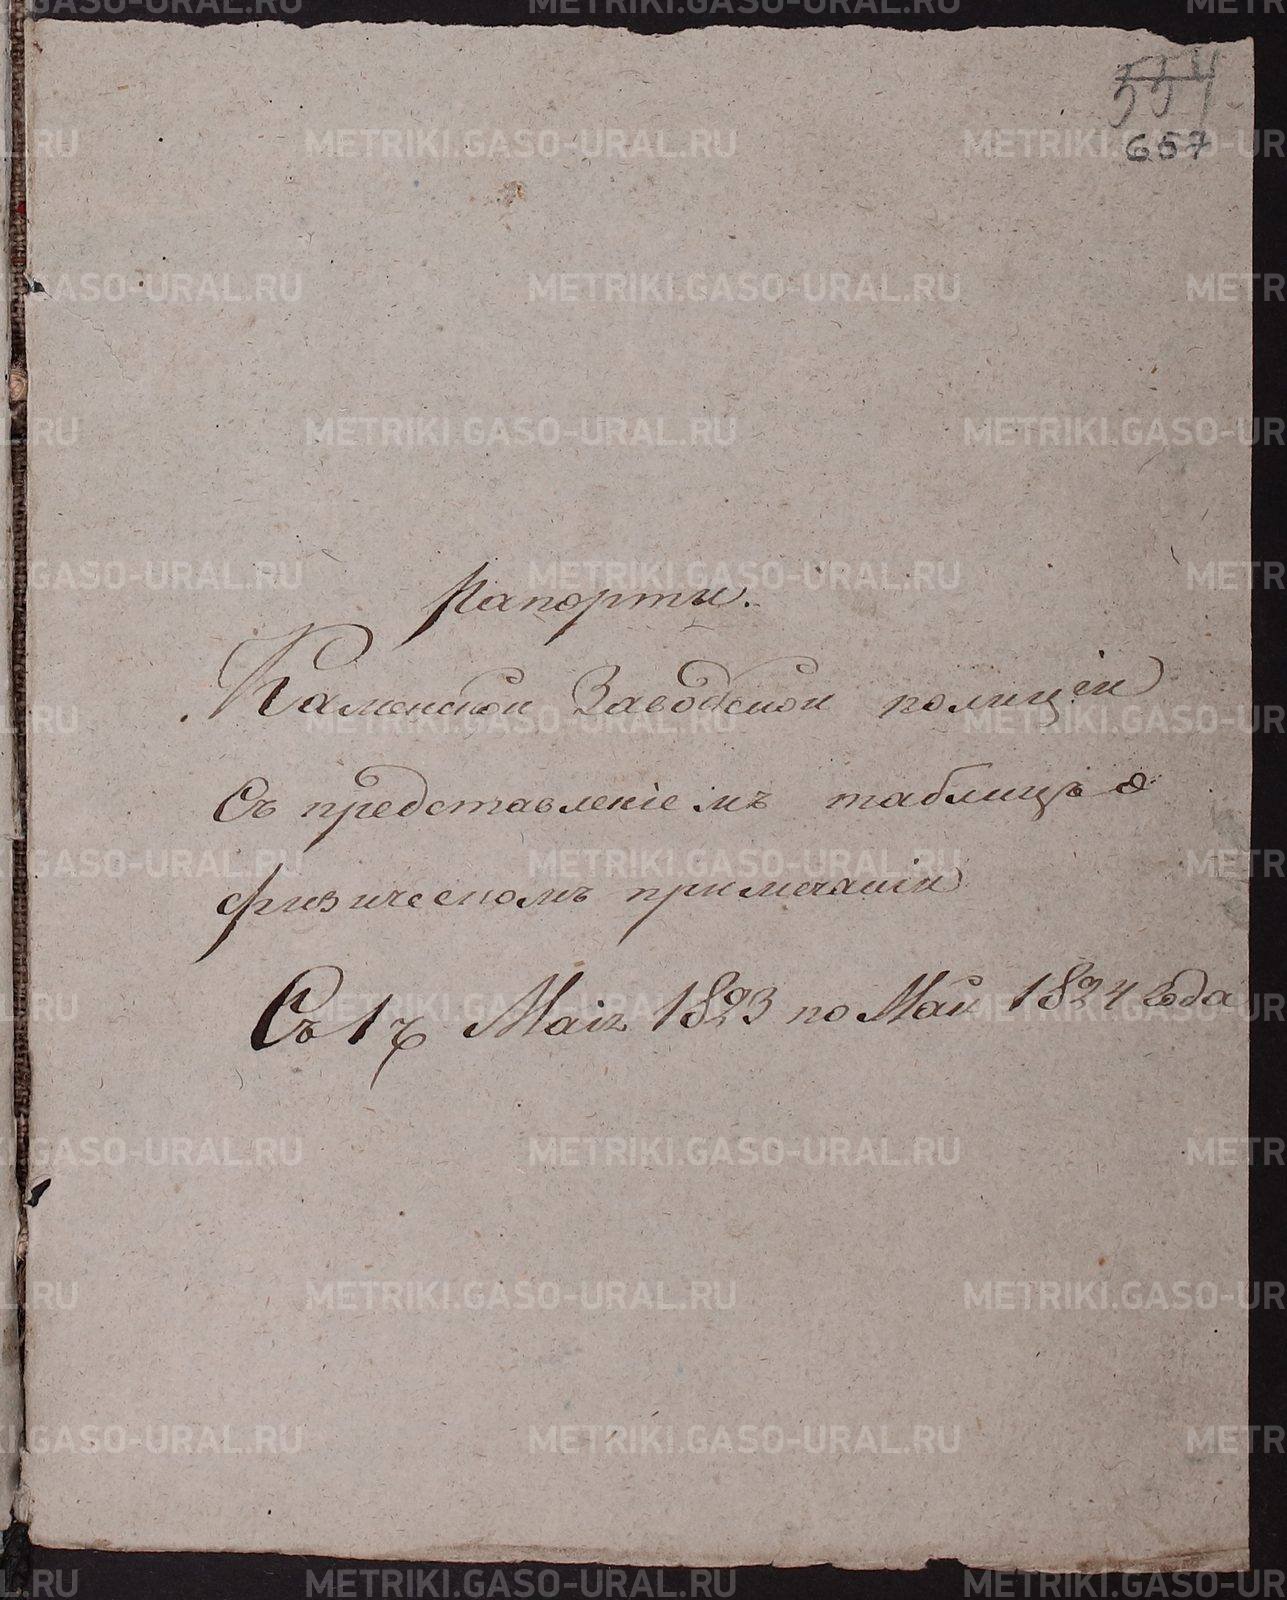 554
657
Рапорты.
Каменской Заводской полиціи
Съ представленіемъ таблицъ о
физическомъ примечаніи
Съ 1 ч Маія 1823 по Май 1824 года
METRIKI.GASO-URAL.RU